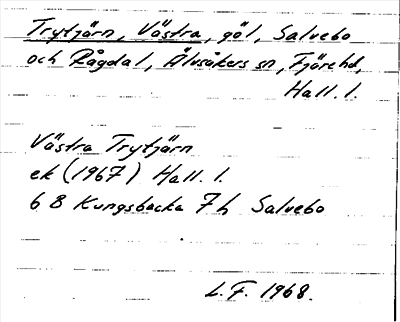 Trytjärn, Västra, göl, Salvebo
och Rågdal, Älvsåkers sn, Fjäre hd,
Hall. l.
Västra Trytjärn
ek (1967) Hall. l.
6 B Kungsbacka 7 h Salvebo
L.F. 1968.